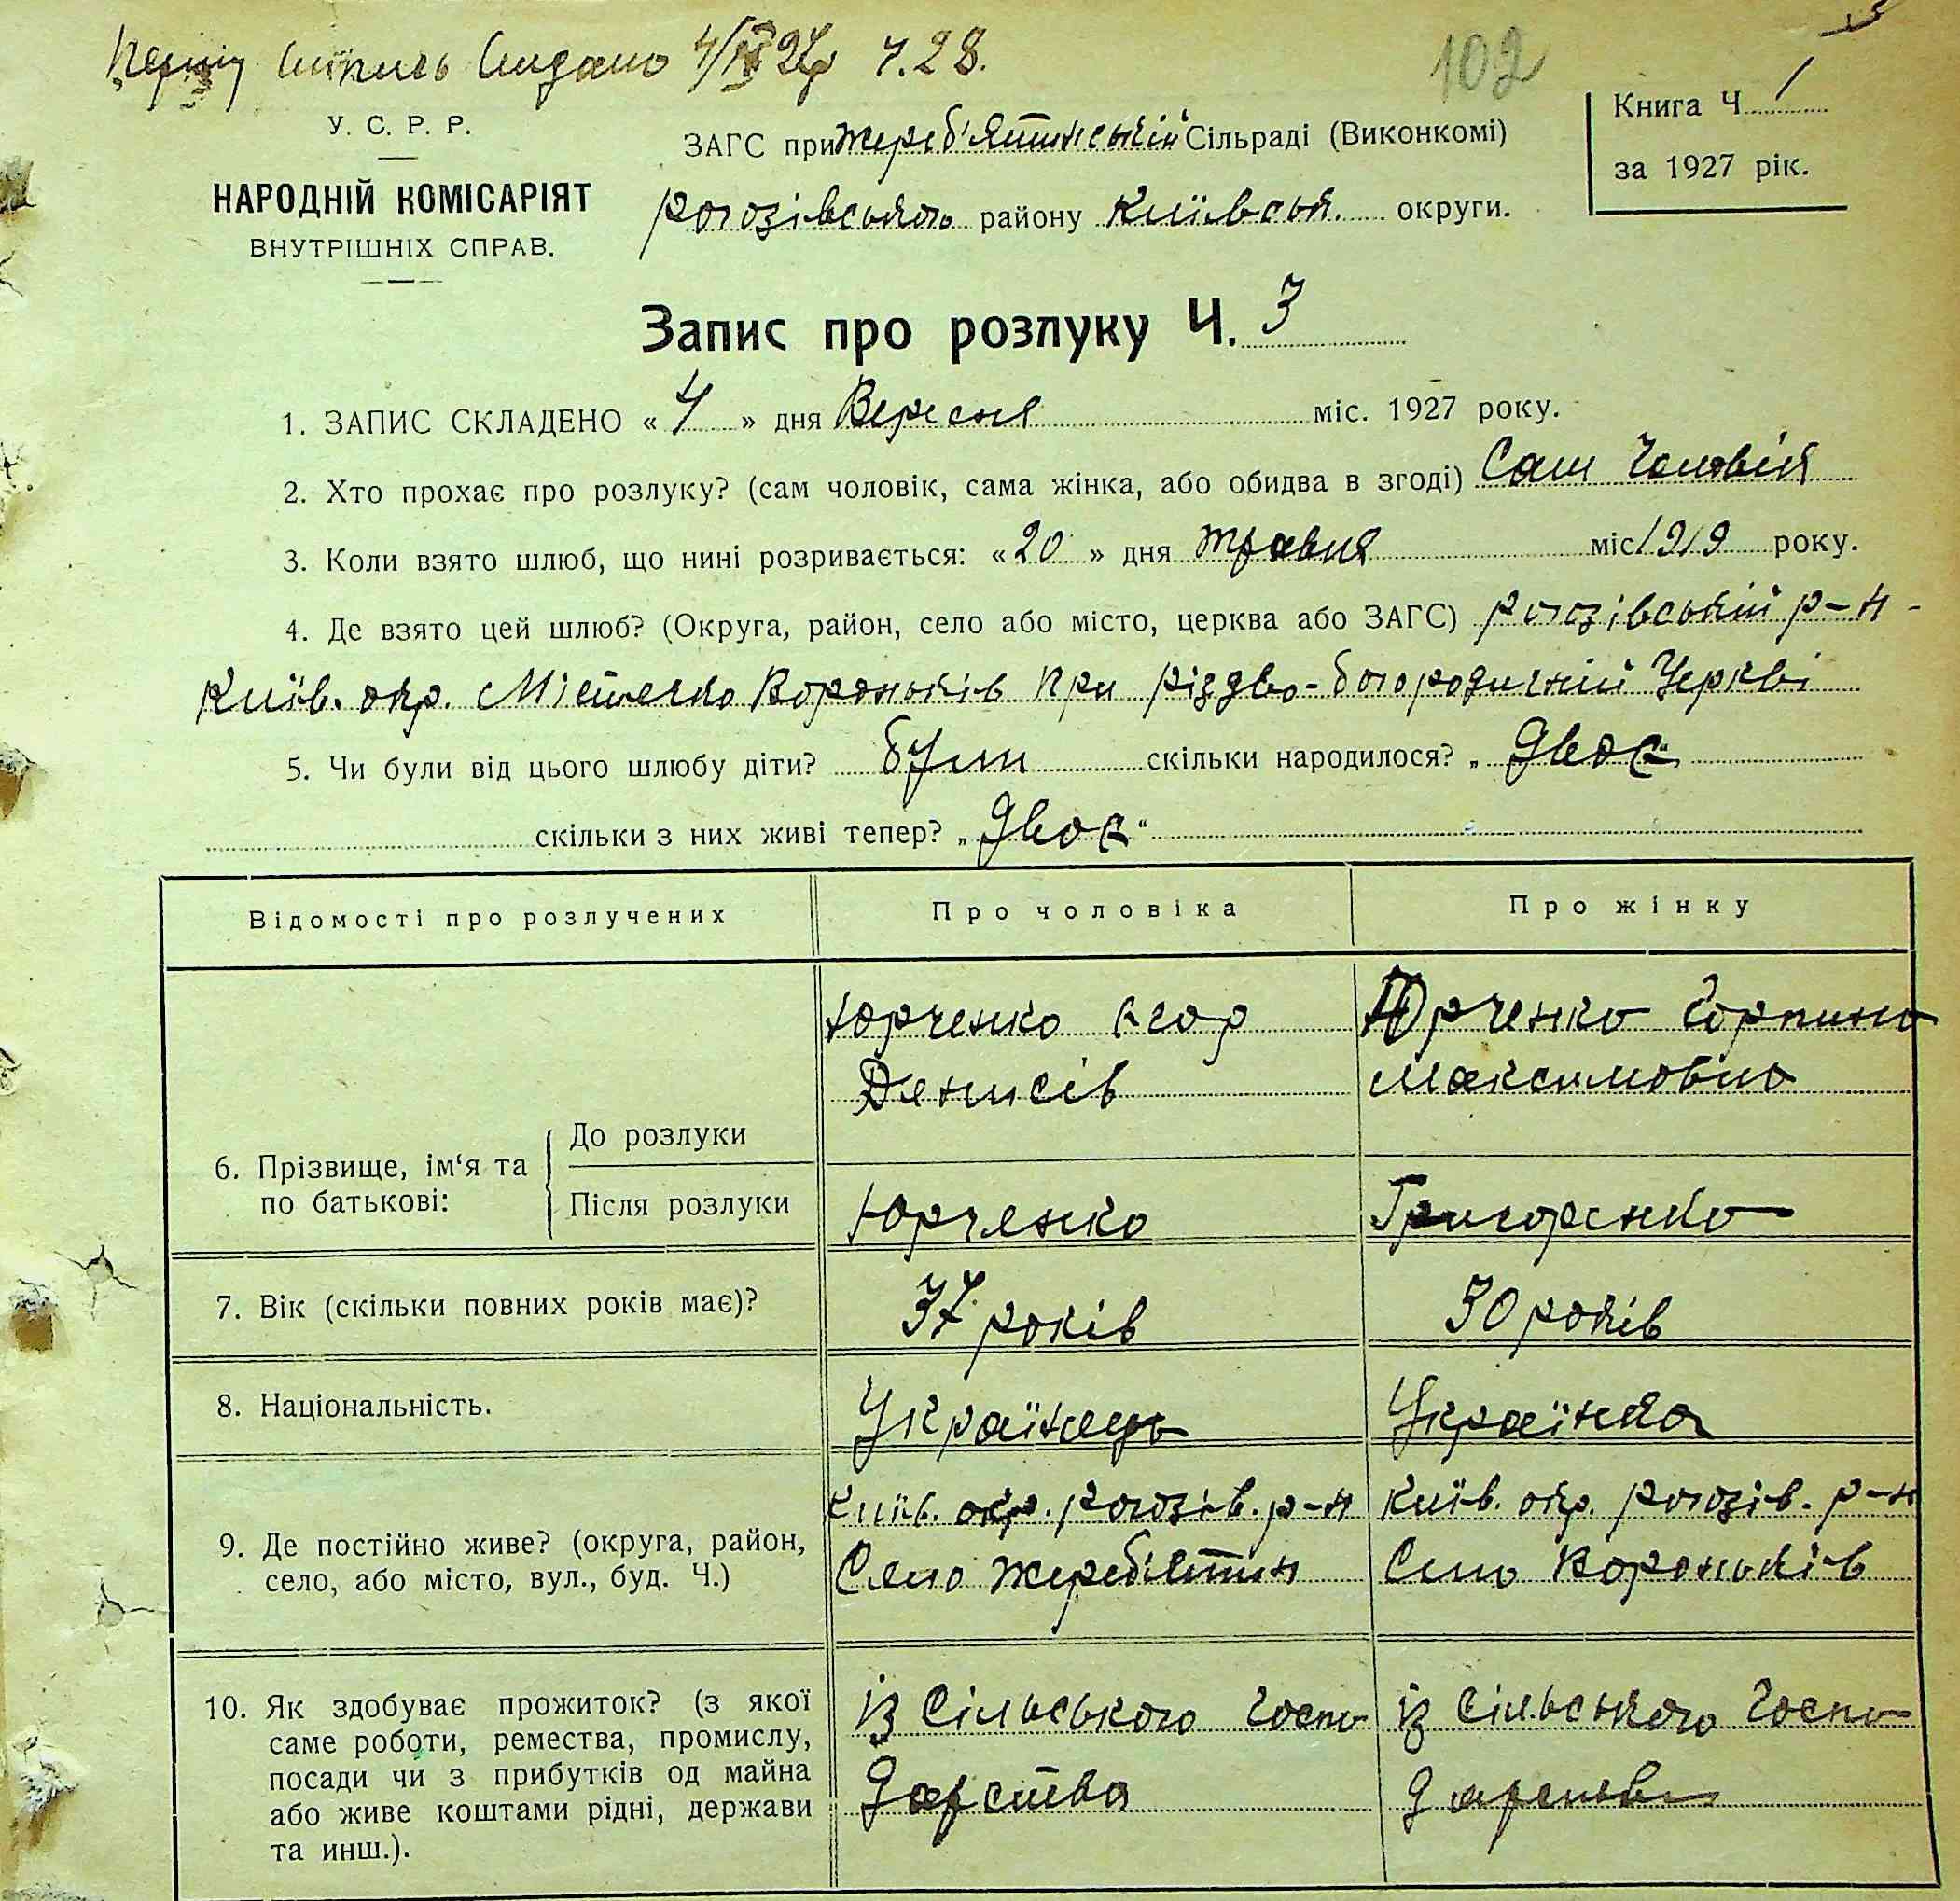 Першу випись видано 4/IX 27р ч. 28.
102
У. С. Р. Р.
НАРОДНІЙ КОМІСАРІЯТ
ВНУТРІШНІХ СПРАВ.
ЗАГС при Жереб'ятинській Сільраді (Виконкомі)
Рогозівського району Київськ. округи.
Книга Ч 1
за 1927 рік.
Запис про розлуку Ч. 3
1. ЗАПИС СКЛАДЕНО «4» дня Вересня міс. 1927 року.
2. Хто прохає про розлуку? (сам чоловік, сама жінка, або обидва в згоді) Сам Чоловік
3. Коли взято шлюб, що нині розривається: «20» дня травня міс 1919 року.
4. Де взято цей шлюб? (Округа, район, село або місто, церква або ЗАГС) Рогозівський р-н -
Київ. окр. Містечко Вороньків При Різдво-богородичній Церкві
5. Чи були від цього шлюбу діти? були скільки народилося? „Двоє“
скільки з них живі тепер? „Двоє“
Відомості про розлучених
Про чоловіка
Про жінку
6. Прізвище, ім‘я та по батькові:
До розлуки
Юрченко Єгор
Денисів
Юрченко Горпина
Максимовна
Після розлуки
Юрченко
Григоренко
7. Вік (скільки повних років має)?
37 років
30 років
8. Національність.
Українець
Українка
9. Де постійно живе? (округа, район,
село, або місто, вул., буд. Ч.)
Київ. окр. Рогозів. р-н
Село Жереб'ятин
Київ. окр. Рогозів. р-н
Село Вороньків
10. Як здобуває прожиток? (з якої
саме роботи, ремества, промислу,
посади чи з прибутків од майна
або живе коштами рідні, держави
та инш.).
із Сільського Госпо
дарства
із Сільського Госпо
дарства